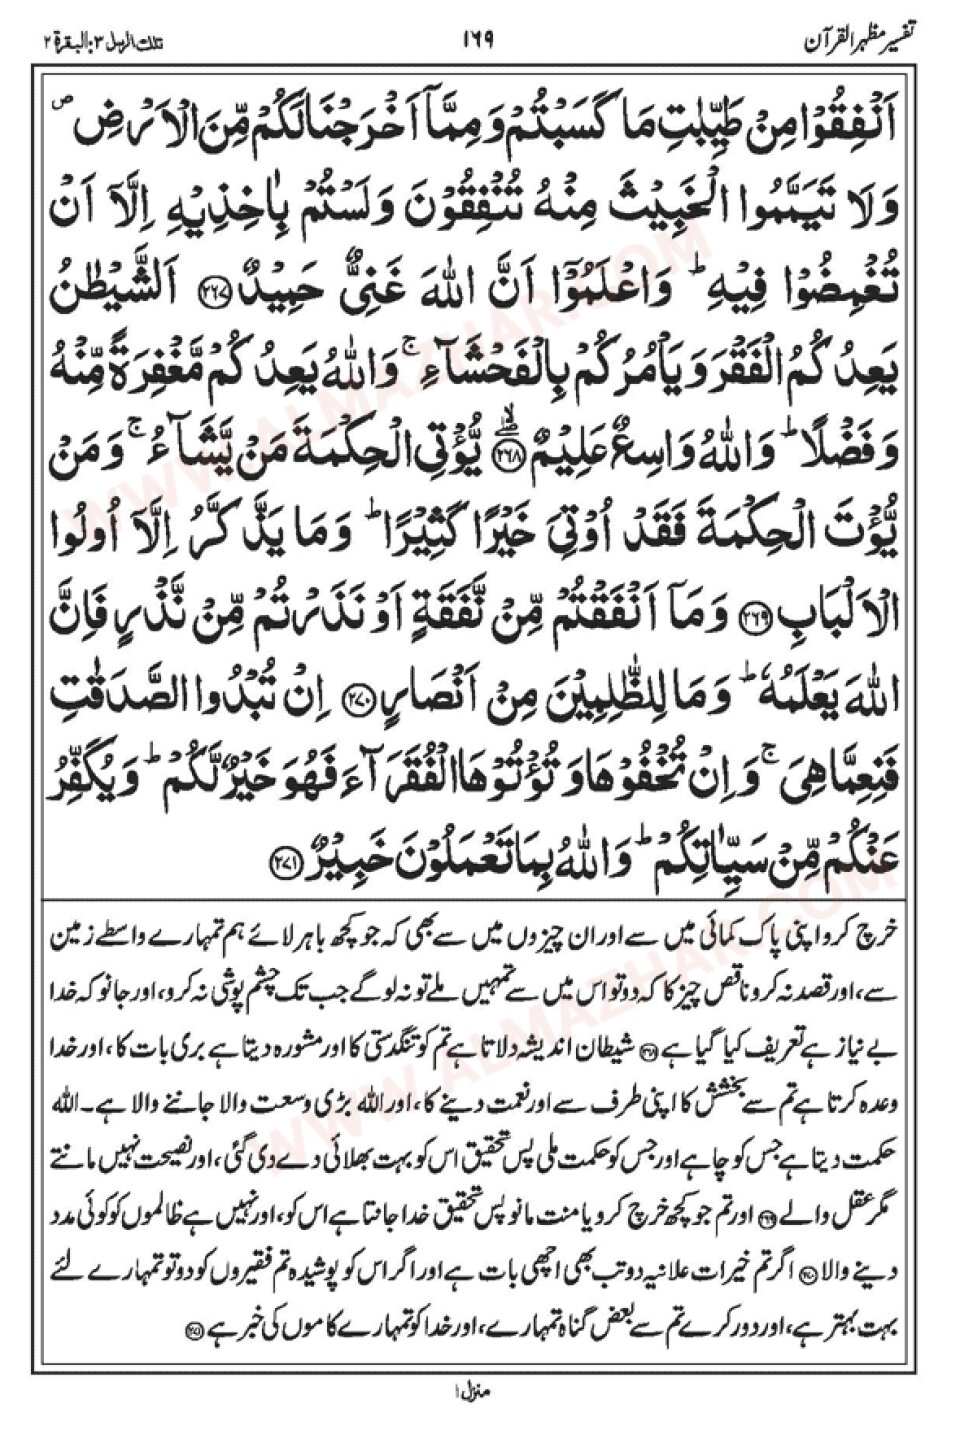 تفسیر مظہر القرآن ۱۶۹ تلک الرسل ۳: البقرۃ ۲
اَنْفِقُوْا مِنْ طَيِّبٰتِ مَا كَسَبْتُمْ وَمِمَّاۤ اَخْرَجْنَا لَكُمْ مِّنَ الْاَرْضِ ۪
وَلَا تَيَمَّمُوا الْخَبِيْثَ مِنْهُ تُنْفِقُوْنَ وَلَسْتُمْ بِاٰخِذِيْهِ اِلَّاۤ اَنْ
تُغْمِضُوْا فِيْهِ ؕ وَاعْلَمُوْۤا اَنَّ اللّٰهَ غَنِیٌّ حَمِيْدٌ ۝۲۶۷ اَلشَّيْطٰنُ
يَعِدُكُمُ الْفَقْرَ وَيَاْمُرُكُمْ بِالْفَحْشَآءِ ۚ وَاللّٰهُ يَعِدُكُمْ مَّغْفِرَةً مِّنْهُ
وَفَضْلًا ؕ وَاللّٰهُ وَاسِعٌ عَلِيْمٌ ۝۲۶۸ يُّؤْتِی الْحِكْمَةَ مَنْ يَّشَآءُ ۚ وَمَنْ
يُّؤْتَ الْحِكْمَةَ فَقَدْ اُوْتِیَ خَيْرًا كَثِيْرًا ؕ وَمَا يَذَّكَّرُ اِلَّاۤ اُولُوا
الْاَلْبَابِ ۝۲۶۹ وَمَاۤ اَنْفَقْتُمْ مِّنْ نَّفَقَةٍ اَوْ نَذَرْتُمْ مِّنْ نَّذْرٍ فَاِنَّ
اللّٰهَ يَعْلَمُهٗ ؕ وَمَا لِلظّٰلِمِيْنَ مِنْ اَنْصَارٍ ۝۲۷۰ اِنْ تُبْدُوا الصَّدَقٰتِ
فَنِعِمَّا هِیَ ۚ وَاِنْ تُخْفُوْهَا وَتُؤْتُوْهَا الْفُقَرَآءَ فَهُوَ خَيْرٌ لَّكُمْ ؕ وَيُكَفِّرُ
عَنْكُمْ مِّنْ سَيِّاٰتِكُمْ ؕ وَاللّٰهُ بِمَا تَعْمَلُوْنَ خَبِيْرٌ ۝۲۷۱
خرچ کرو اپنی پاک کمائی میں سے اور ان چیزوں میں سے بھی کہ جو کچھ باہر لائے ہم تمہارے واسطے زمین
سے، اور قصد نہ کرو ناقص چیز کا کہ دو تو اس میں سے تمہیں ملے تو نہ لو گے جب تک چشم پوشی نہ کرو، اور جانو کہ خدا
بے نیاز ہے تعریف کیا گیا ہے شیطان اندیشہ دلاتا ہے تم کو تنگدستی کا اور مشورہ دیتا ہے بری بات کا، اور خدا
وعدہ کرتا ہے تم سے بخشش کا اپنی طرف سے اور نعمت دینے کا، اور اللہ بڑی وسعت والا جاننے والا ہے۔ اللہ
حکمت دیتا ہے جس کو چاہے اور جس کو حکمت ملی پس تحقیق اس کو بہت بھلائی دے دی گئی، اور نصیحت نہیں مانتے
مگر عقل والے ۲۶۹ اور تم جو کچھ خرچ کرو یا منت مانو پس تحقیق خدا جانتا ہے اس کو، اور نہیں ہے ظالموں کو کوئی مدد
دینے والا ۲۷۰ اگر تم خیرات علانیہ دو تب بھی اچھی بات ہے اور اگر اس کو پوشیدہ تم فقیروں کو دو تو تمہارے لئے
بہت بہتر ہے، اور دور کرے تم سے بعض گناہ تمہارے، اور خدا کو تمہارے کاموں کی خبر ہے ۲۷۱
منزل ۱
WWW.ALMAZHAR.COM
WWW.ALMAZHAR.COM